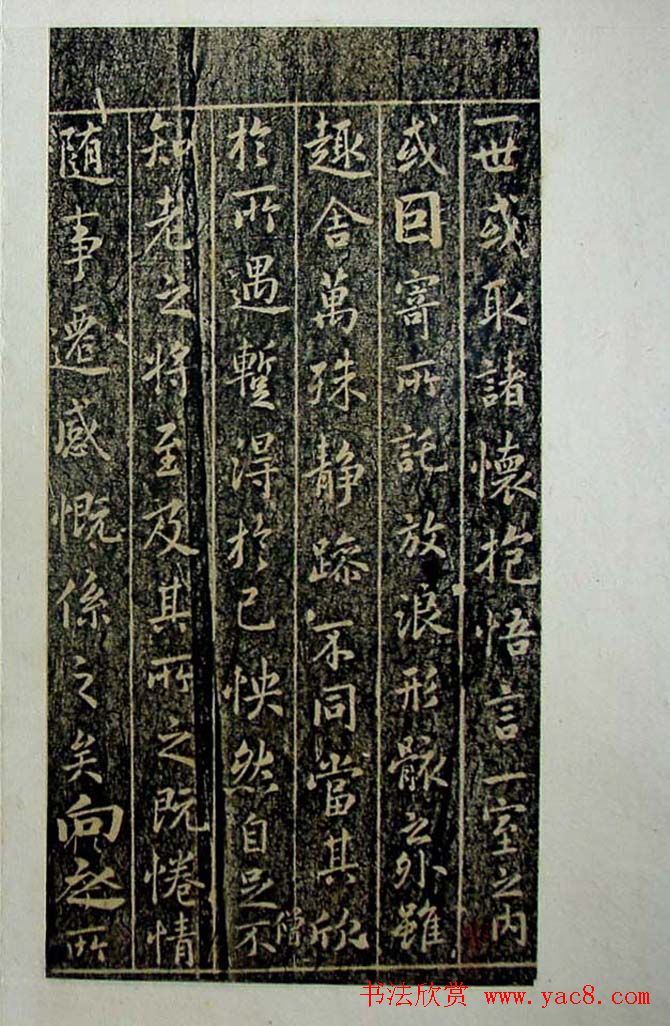 一世或取諸懷抱悟言一室之内
或因寄所託放浪形骸之外雖
趣舍萬殊静躁不同當其欣
於所遇暫得於己怏然自足不
僧
知老之將至及其所之既惓情
隨事遷感慨係之矣向之所
书法欣赏 www.yac8.com